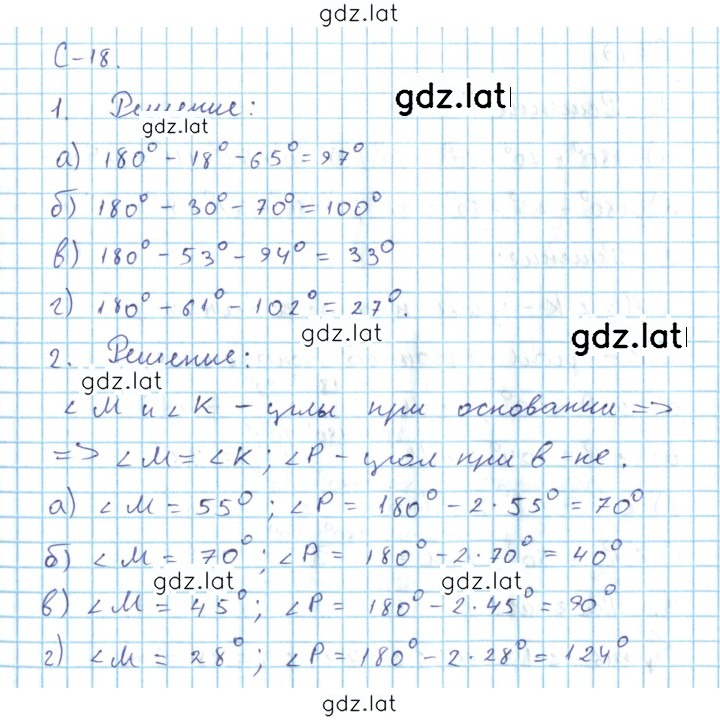 gdz.lat
С-18.
1. Решение:
gdz.lat
gdz.lat
а) 180° - 18° - 65° = 97°
б) 180° - 30° - 70° = 100°
в) 180° - 53° - 94° = 33°
г) 180° - 61° - 102° = 27°.
gdz.lat
gdz.lat
2. Решение:
gdz.lat
∠M и ∠K - углы при основании =>
=> ∠M = ∠K; ∠P - угол при в-не.
а) ∠M = 55°; ∠P = 180° - 2·55° = 70°
б) ∠M = 70°; ∠P = 180° - 2·70° = 40°
gdz.lat
gdz.lat
в) ∠M = 45°; ∠P = 180° - 2·45° = 90°
г) ∠M = 28°; ∠P = 180° - 2·28° = 124°
gdz.lat